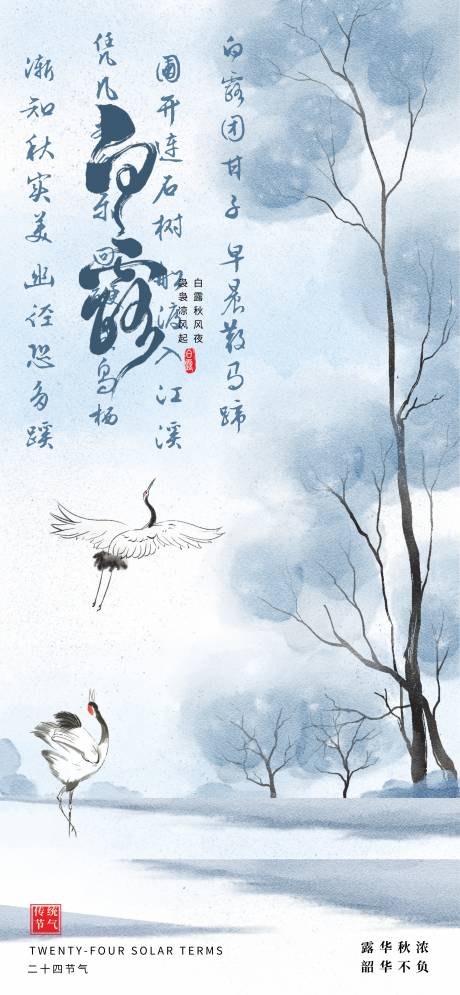 白露团甘子 早晨散马蹄
圃开连石树 船渡入江溪
凭几 乐 回 鸟栖
渐知秋实美 幽径恐多蹊
白露
白露秋风夜
袅袅凉风起
白露
传统
节气
TWENTY-FOUR SOLAR TERMS
二十四节气
露华秋浓
韶华不负